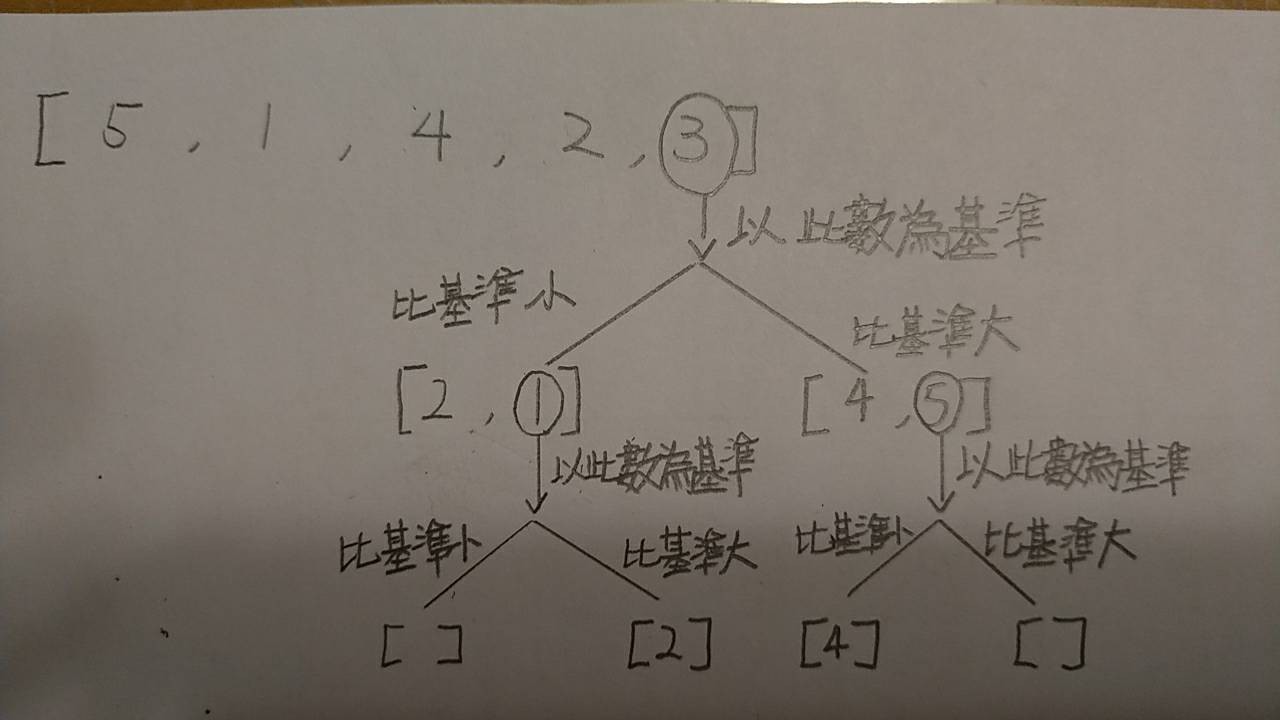 [ 5 , 1 , 4 , 2 , 3 ]
以此數為基準
比基準小
比基準大
[ 2 , 1 ]
[ 4 , 5 ]
以此數為基準
以此數為基準
比基準小
比基準大
比基準小
比基準大
[ ]
[2]
[4]
[ ]